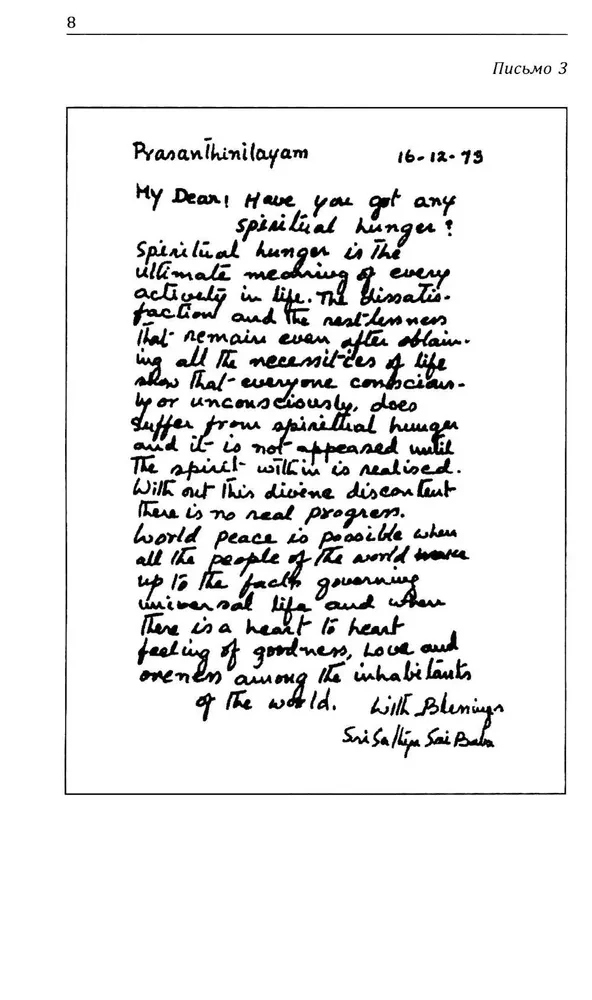 8
Письмо 3
Prasanthinilayam 16-12-73
My Dear! Have you got any
spiritual hunger?
Spiritual hunger is the
ultimate meaning of every
activety in life. The dissatis-
faction and the restlessness
that remain even after obtain-
ing all the necessities of life
show that everyone conscious-
ly or unconsciously, does
suffer from spiritual hunger
and it is not appeased until
The spirit within is realised.
With out this divine discontent
there is no real progress.
World peace is possible when
all the people of the world wake
up to the facts governing
universal life and when
there is a heart to heart
feeling of goodness, Love and
oneness among the inhabitants
of the world. With Blessings
Sri Sathya Sai Baba